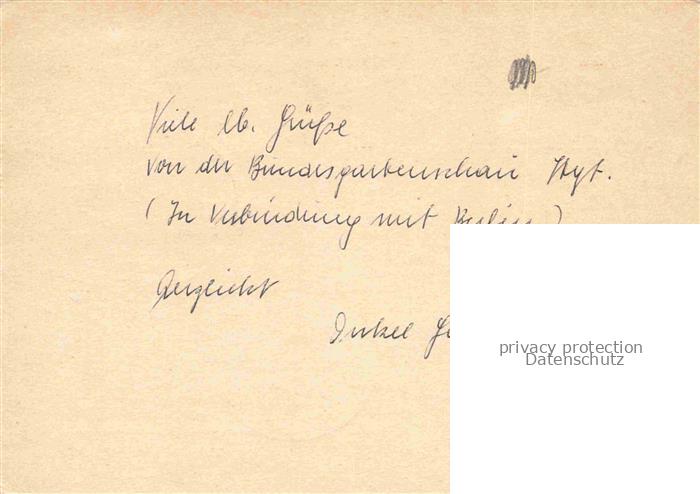 Viele lb. Grüße
von der Bundesgartenschau Stgt.
(In Verbindung mit Berlin)
Herzlichst
Onkel
privacy protection
Datenschutz